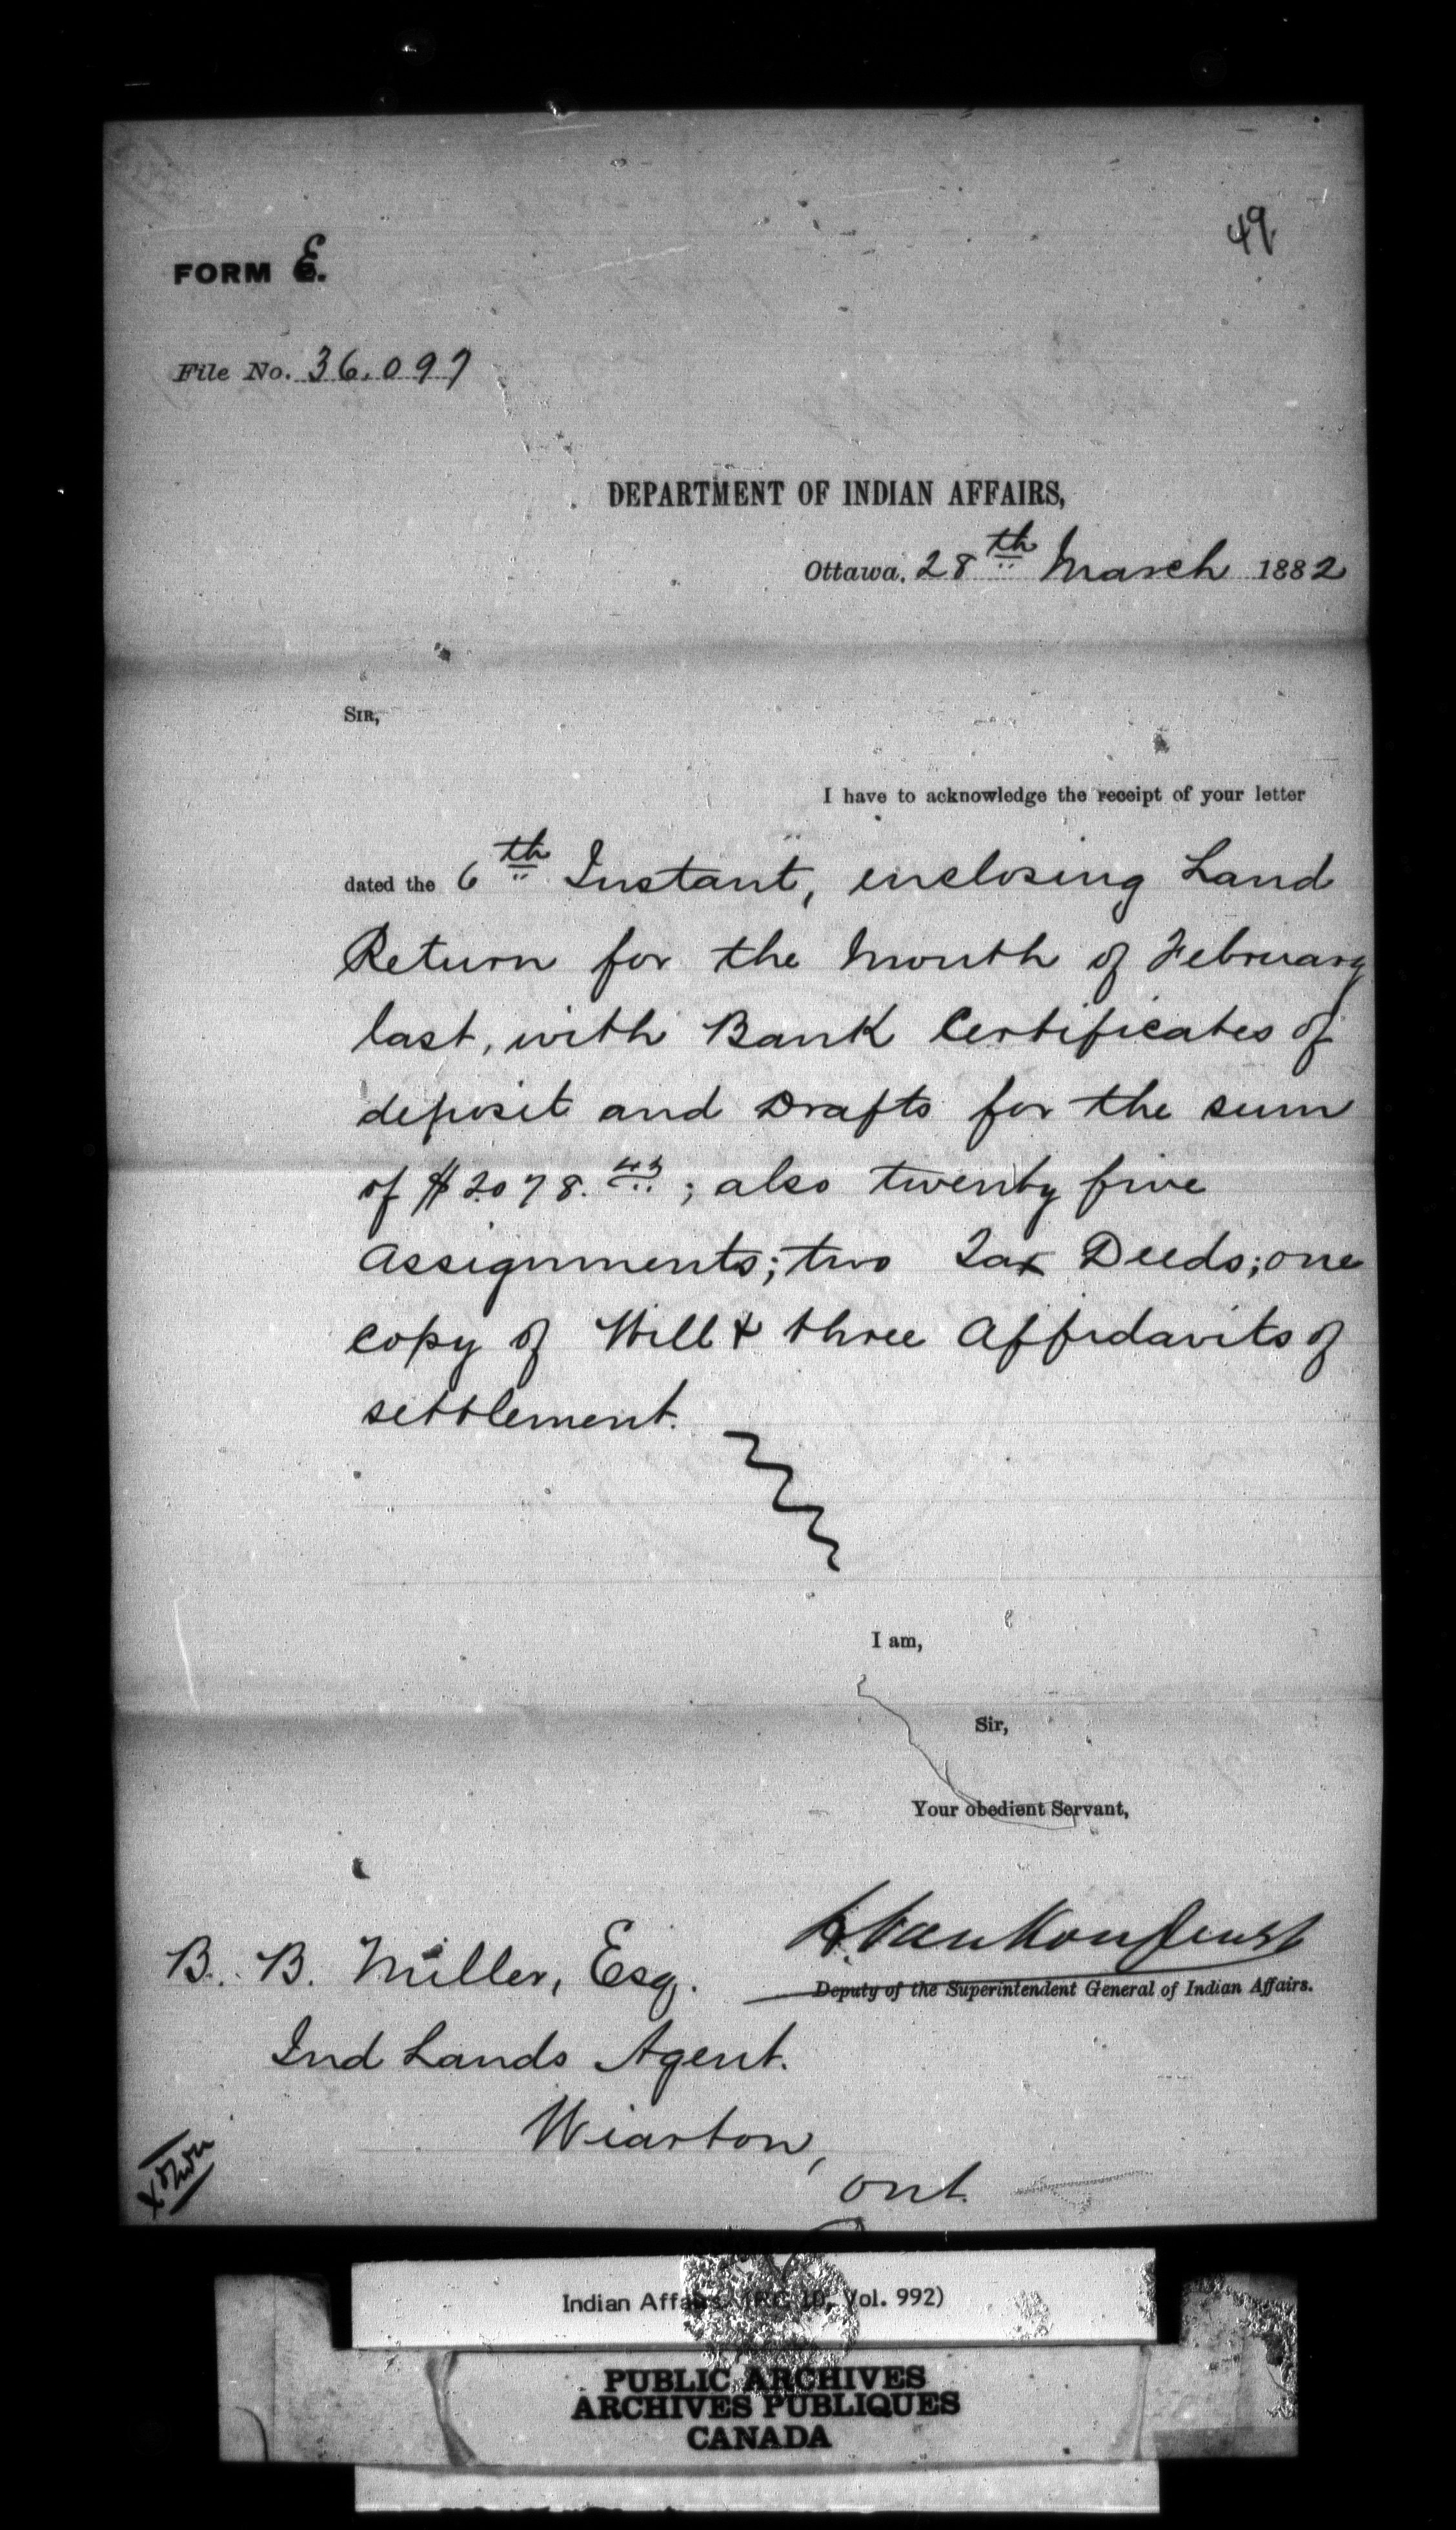 49
FORM E.
File No. 36.097
DEPARTMENT OF INDIAN AFFAIRS,
Ottawa, 28th March 1882
SIR,
I have to acknowledge the receipt of your letter
dated the 6th Instant, enclosing Land
Return for the Month of February
last, with Bank Certificates of
deposit and Drafts for the sum
of $2078.43; also twenty five
Assignments; two Tax Deeds; one
copy of Will & three Affidavits of
settlement.
I am,
Sir,
Your obedient Servant,
L. VanKoughnet
Deputy of the Superintendent General of Indian Affairs.
B. B. Miller, Esq.
Ind Lands Agent.
Wiarton,
Ont.
Indian Affairs. (RG 10, Vol. 992)
PUBLIC ARCHIVES
ARCHIVES PUBLIQUES
CANADA